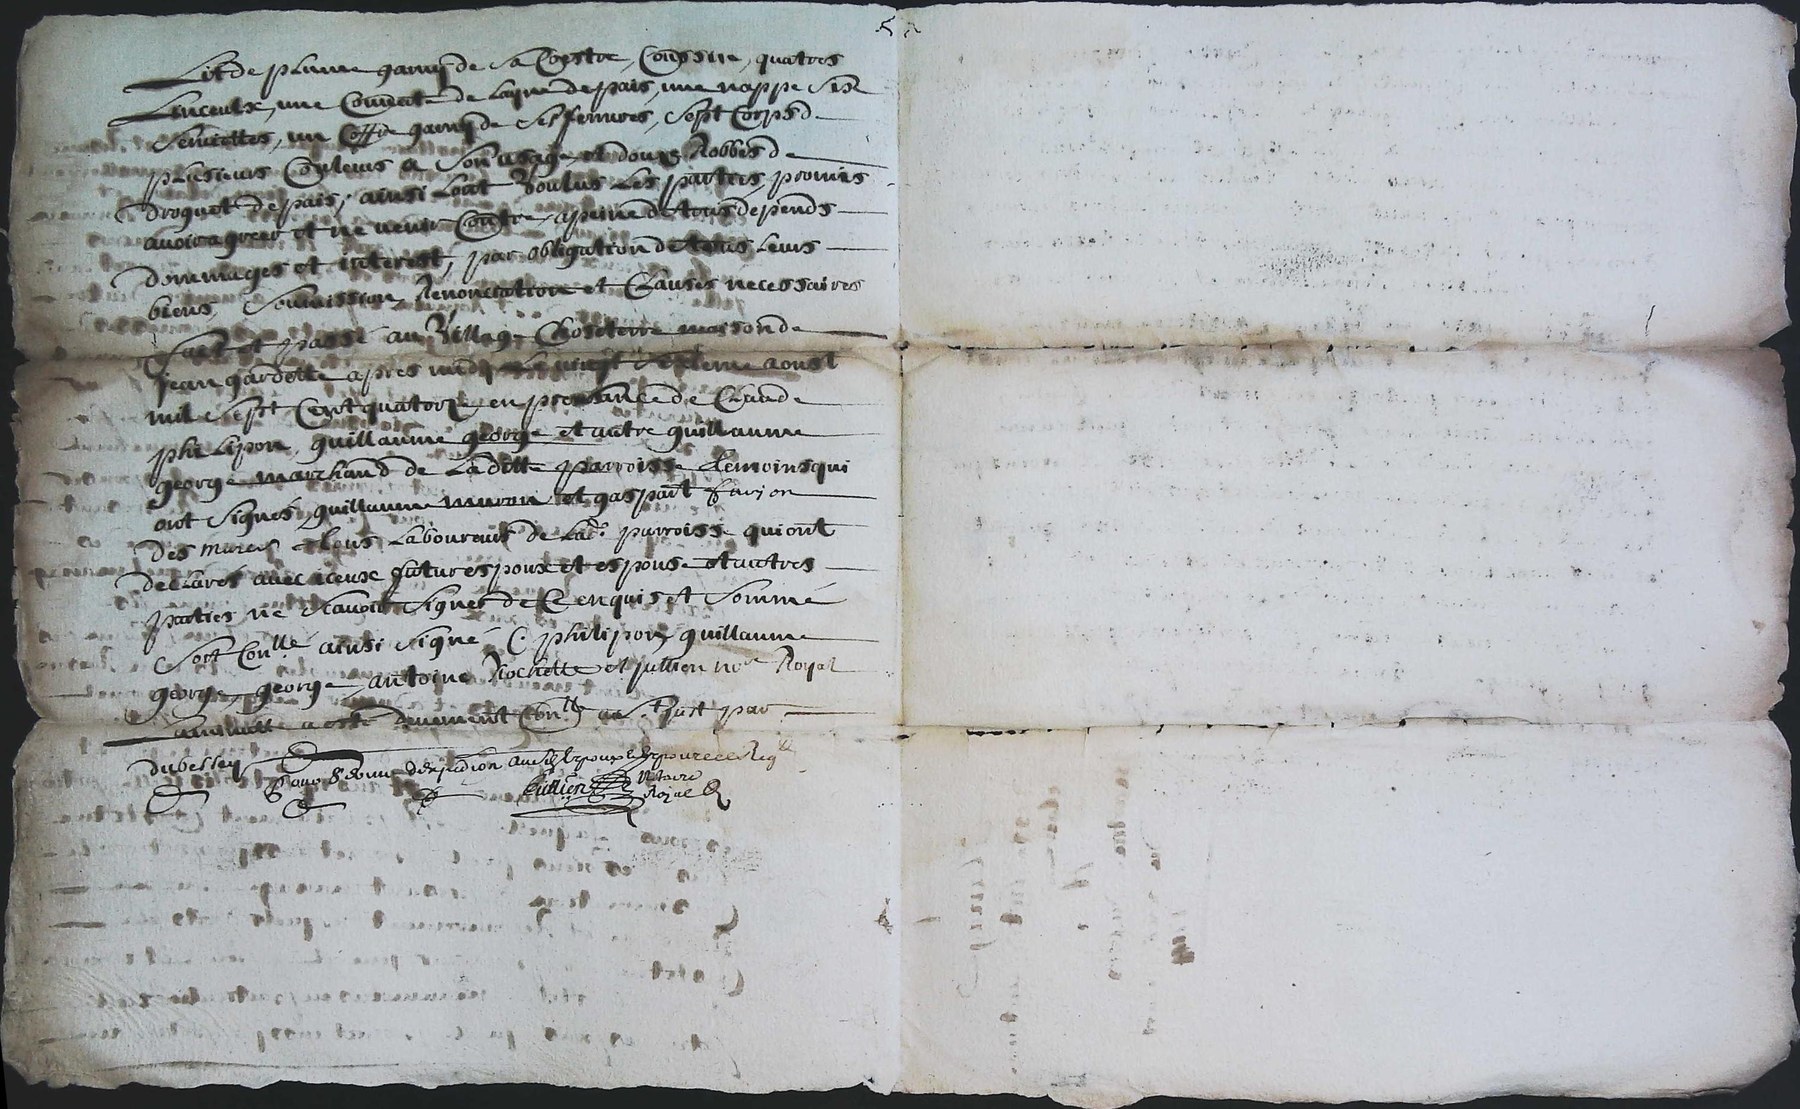 Lit de plume garny de sa Coestre, Coussin, quatres
Linceulx, une Couverte de Layne de pais, une nappe Six
Serviettes, un Coffre garny de Ses ferrures, Sept Corps de
plusieurs Couleurs a Son usage et douze Robbes de
droguet de pais, ainsi Lont Voulus Les parties, promis
avoir agreer et ne venir Contre, a peine de tous depends
dommages et interest, par obligation de tous Leurs
biens, Soumission, Renonciation et Clauses necessaires
fait et passé au Village Chosterre maison de
jean gardette apres midy Le vingt Septieme aoust
mil Sept Cent quatorze en presance de Claude
philipon, guillaume george et autre guillaume
george marchand de Laditte parroisse temoins qui
ont Signés, guillaume muron et gaspart farjon
des mures tous Laboureurs de Lad. parroisse qui ont
declarés avec iceux futurs espoux et espouse et autres
parties ne Scavoir Signer de Ce enquis et Sommé
Soit Conllé ainsi Signé, C. philipon, guillaume
george, george, antoine Rochette et jullien nore Royal
La minutte a esté deuement Conllée a St just par
dubessey
pour Seconde expedition ausd. Espoux
Jullien Notaire
Royal